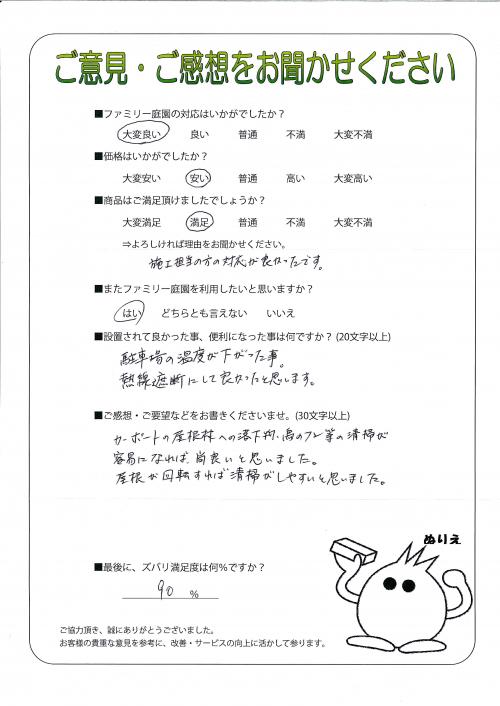 ご意見・ご感想をお聞かせください
■ファミリー庭園の対応はいかがでしたか？
大変良い 良い 普通 不満 大変不満
■価格はいかがでしたか？
大変安い 安い 普通 高い 大変高い
■商品はご満足頂けましたでしょうか？
大変満足 満足 普通 不満 大変不満
⇒よろしければ理由をお聞かせください。
施工担当の方の対応が良かったです。
■またファミリー庭園を利用したいと思いますか？
はい どちらとも言えない いいえ
■設置されて良かった事、便利になった事は何ですか？(20文字以上)
駐車場の温度が下がった事。
熱線遮断にして良かったと思います。
■ご感想・ご要望などをお書きくださいませ。(30文字以上)
カーポートの屋根材への落下物、鳥のフン等の清掃が
容易になれば、尚良いと思いました。
屋根が回転すれば清掃がしやすいと思いました。
ぬりえ
■最後に、ズバリ満足度は何％ですか？
90 ％
ご協力頂き、誠にありがとうございました。
お客様の貴重な意見を参考に、改善・サービスの向上に活かして参ります。